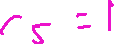 r_5 = 1